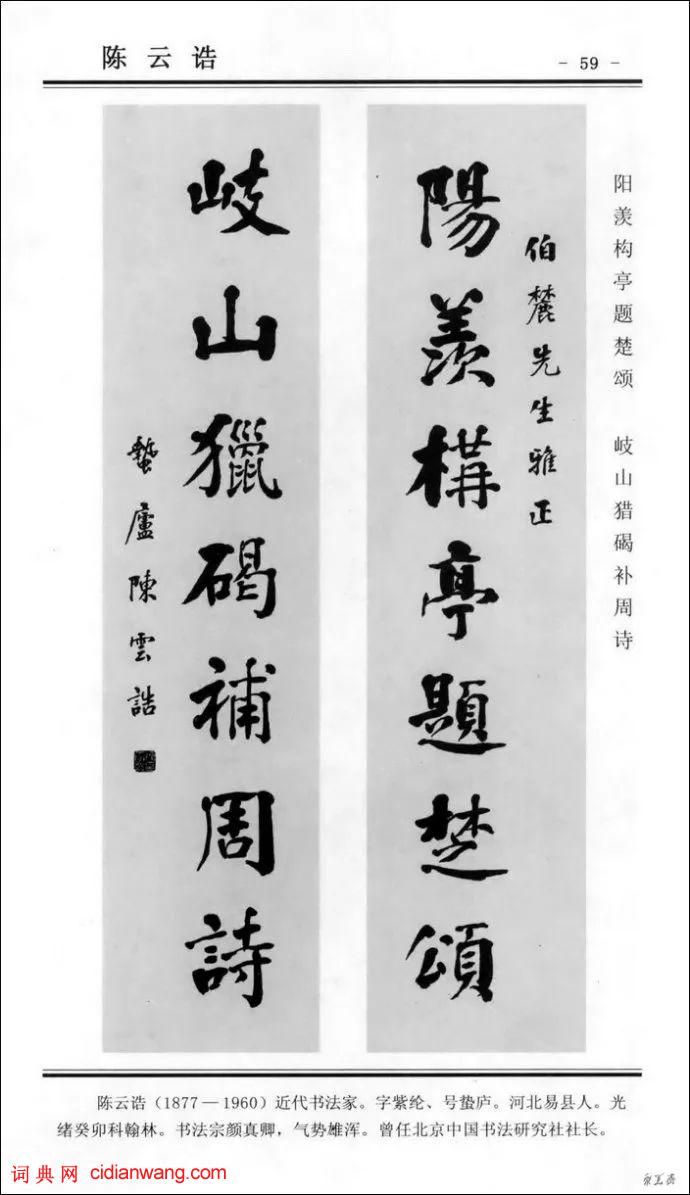 陈云诰
- 59 -
阳羡构亭题楚颂 岐山猎碣补周诗
伯麓先生雅正
陽羨構亭題楚頌
岐山獵碣補周詩
蟄廬陳雲誥
陈云诰（1877—1960）近代书法家。字紫纶、号蛰庐。河北易县人。光
绪癸卯科翰林。书法宗颜真卿，气势雄浑。曾任北京中国书法研究社社长。
词典网 cidianwang.com